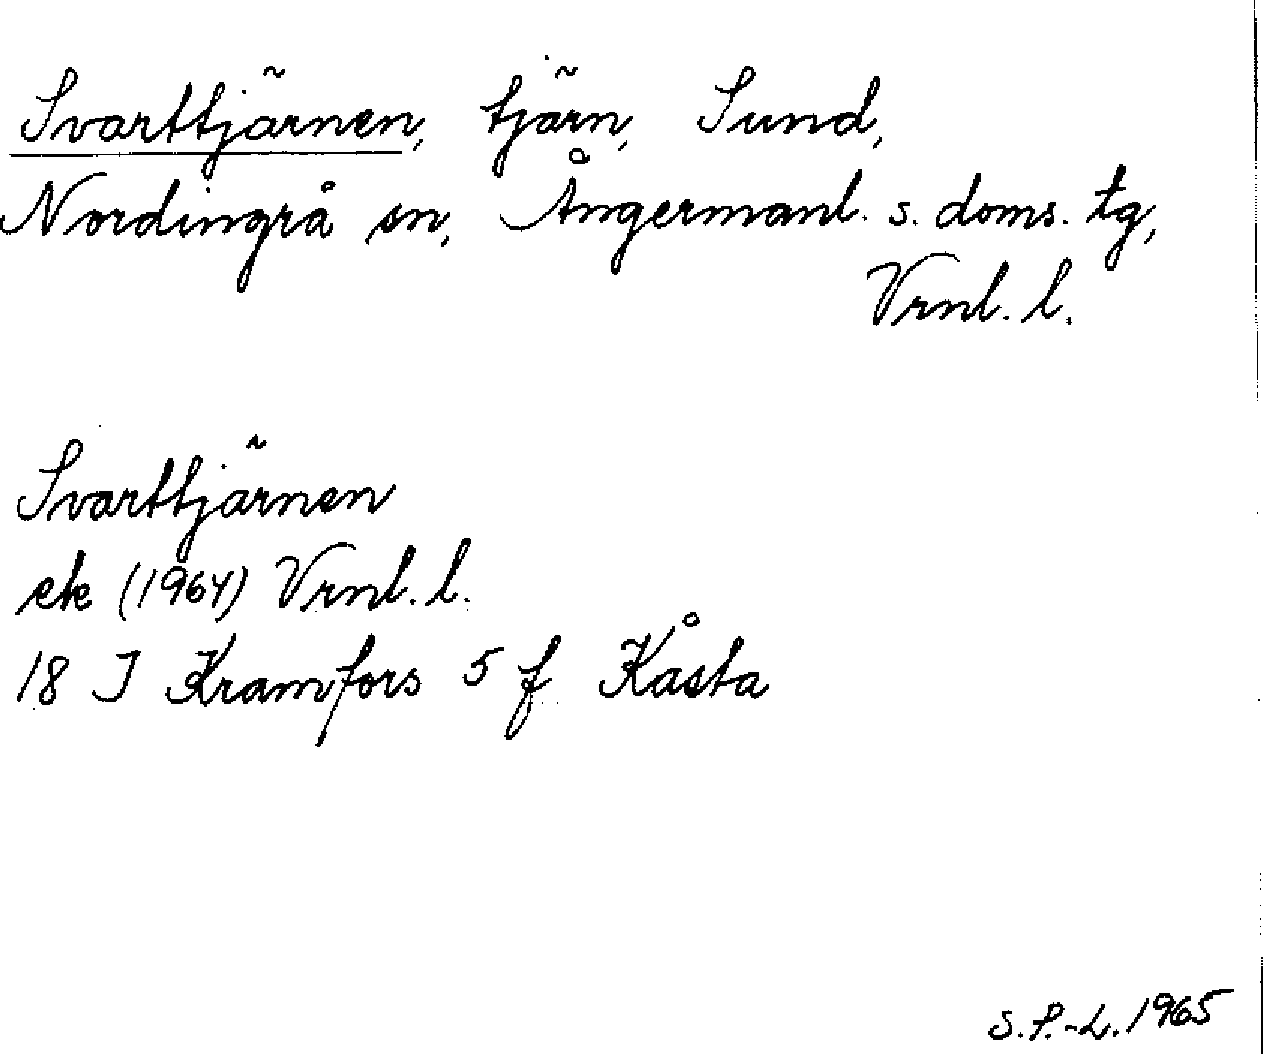 Svarttjärnen, tjärn, Sund,
Nordingrå sn, Ångermanl. s. doms. tg,
Vrnl. l.
Svarttjärnen
ek (1964) Vrnl. l.
18 J Kramfors 5 f Kåsta
S.P.-L. 1965